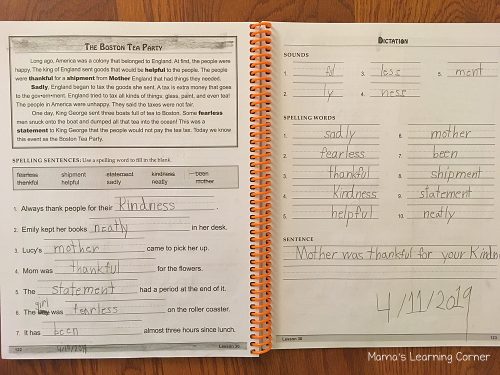 THE BOSTON TEA PARTY
Long ago, America was a colony that belonged to England. At first, the people were
happy. The king of England sent goods that would be helpful to the people. The people
were thankful for a shipment from Mother England that had things they needed.
Sadly, England began to tax the goods she sent. A tax is extra money that goes
to the gov•ern•ment. England tried to tax all kinds of things: glass, paint, and even tea!
The people in America were unhappy. They said the taxes were not fair.
One day, King George sent three boats full of tea to Boston. Some fearless
men snuck onto the boat and dumped all that tea into the ocean! This was a
statement to King George that the people would not pay the tea tax. Today we know
this event as the Boston Tea Party.
SPELLING SENTENCES: Use a spelling word to fill in the blank.
fearless shipment statement kindness been
thankful helpful sadly neatly mother
1. Always thank people for their Kindness .
2. Emily kept her books neatly in her desk.
3. Lucy's mother came to pick her up.
4. Mom was thankful for the flowers.
5. The statement had a period at the end of it.
6. The girl was fearless on the roller coaster.
7. It has been almost three hours since lunch.
122 Lesson 30
DICTATION
SOUNDS
1. ful 3. less 5. ment
2. ly 4. ness
SPELLING WORDS
1. sadly 6. mother
2. fearless 7. been
3. thankful 8. shipment
4. Kindness 9. statement
5. helpful 10. neatly
SENTENCE
Mother was thankful for your Kindn
4/11/2019
Lesson 30 123
Mama's Learning Corner